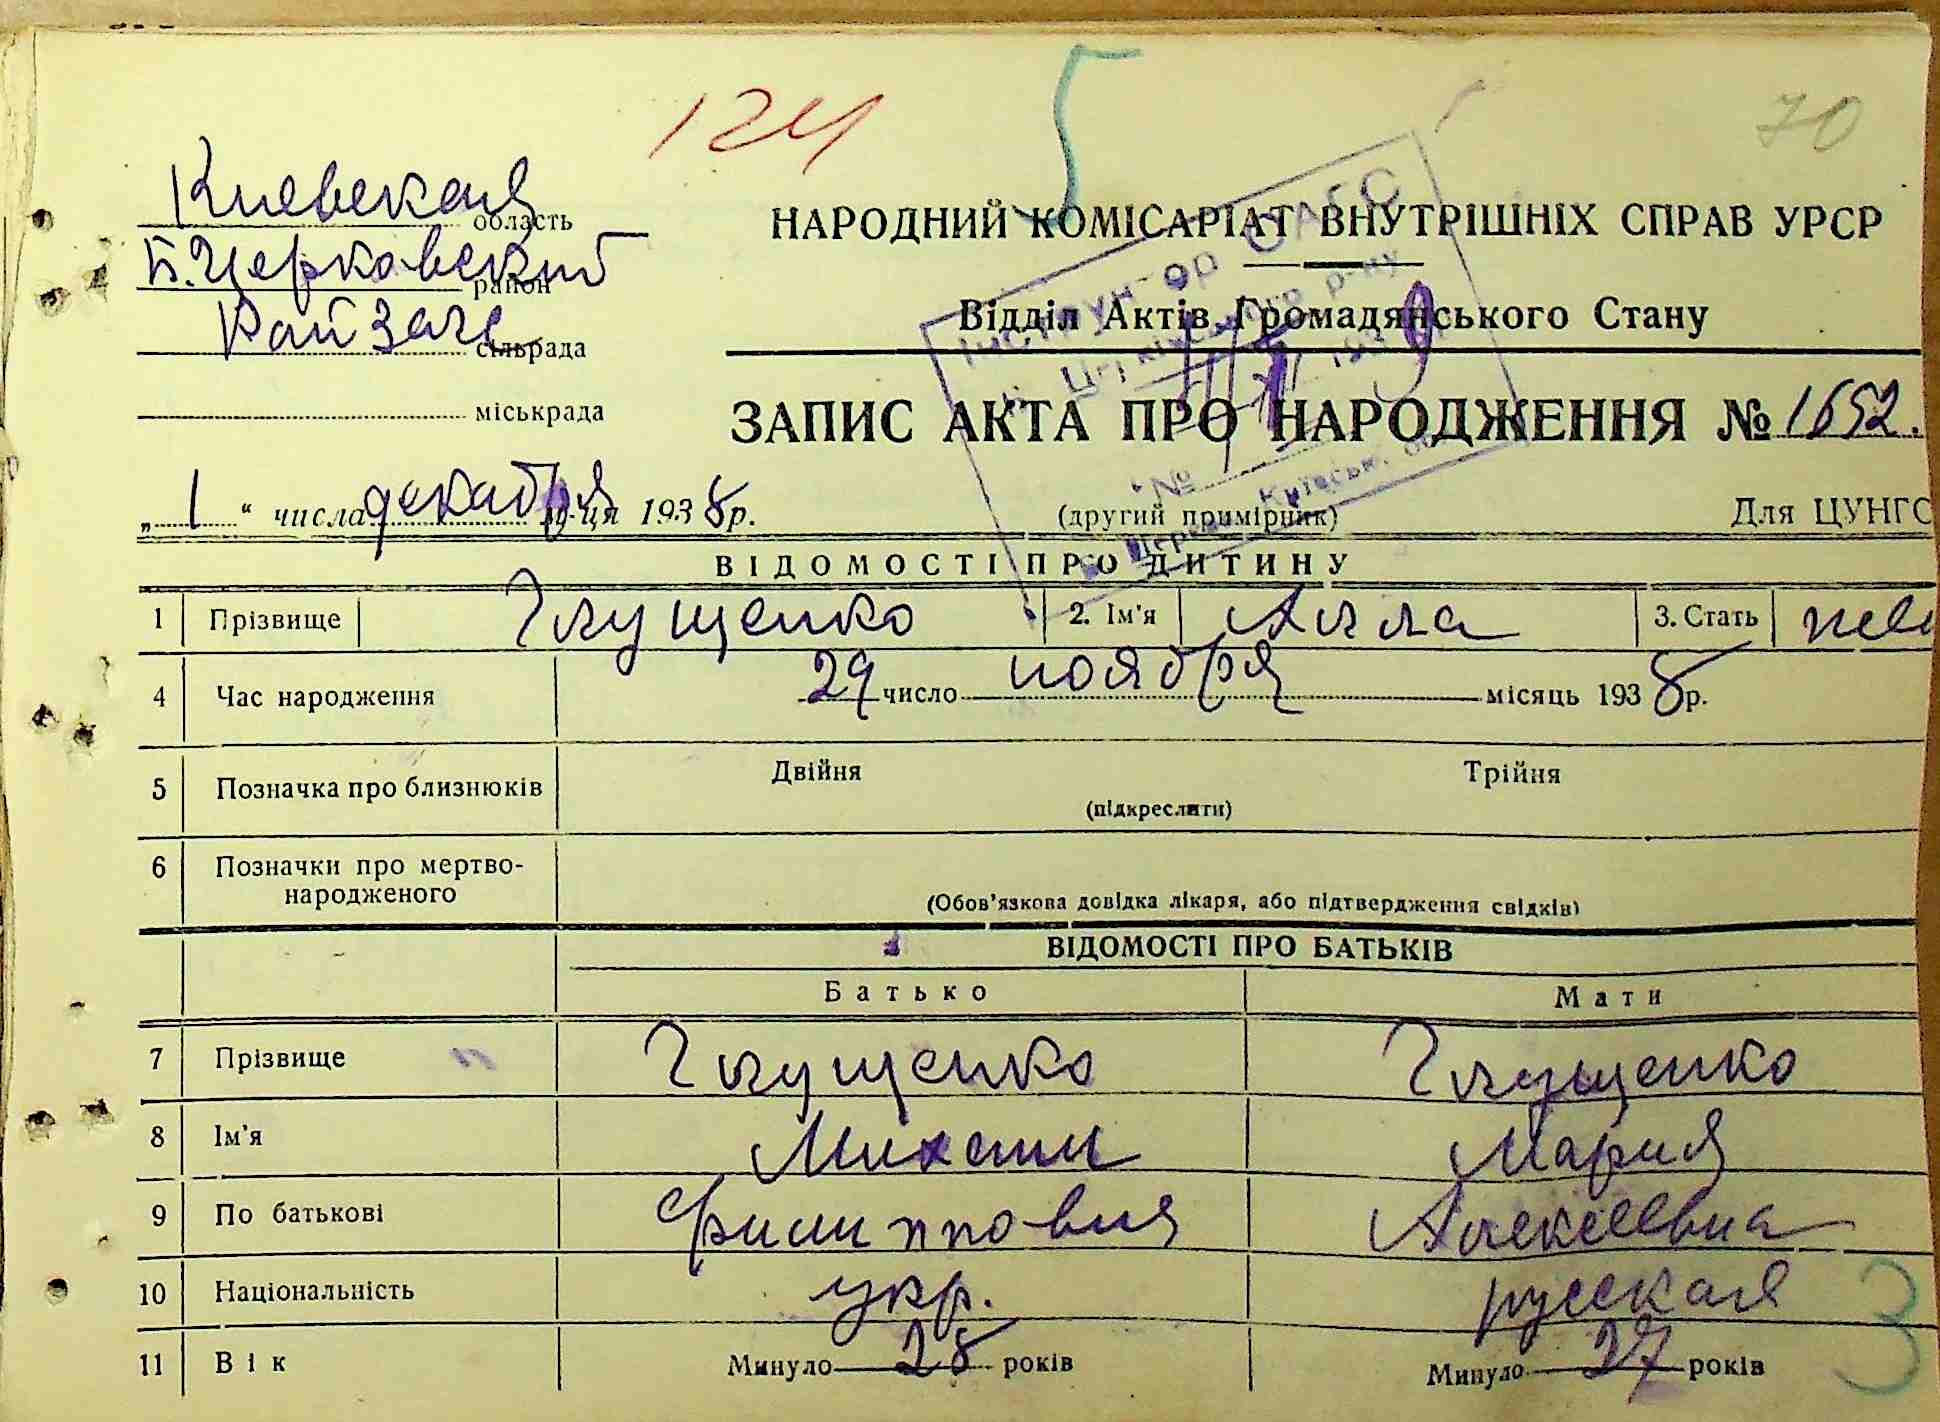 124
5
70
Киевская область
Б. Церковский район
Рай Загс сільрада
міськрада
НАРОДНИЙ КОМІСАРІАТ ВНУТРІШНІХ СПРАВ УРСР
Відділ Актів Громадянського Стану
ЗАПИС АКТА ПРО НАРОДЖЕННЯ № 1652.
„ 1 “ числа декабря м-ця 1938 р.
(другий примірник)
Для ЦУНГО
ВІДОМОСТІ ПРО ДИТИНУ
1 Прізвище Глущенко 2. Ім'я Алла 3. Стать
4 Час народження 29 число ноября місяць 1938 р.
5 Позначка про близнюків Двійня Трійня
(підкреслити)
6 Позначки про мертво-
народженого
(Обов'язкова довідка лікаря, або підтвердження свідків)
ВІДОМОСТІ ПРО БАТЬКІВ
Батько Мати
7 Прізвище Глущенко Глущенко
8 Ім'я Михаил Мария
9 По батькові Филиппович Алексеевна
10 Національність укр. русская
3
11 Вік Минуло 28 років Минуло 27 років